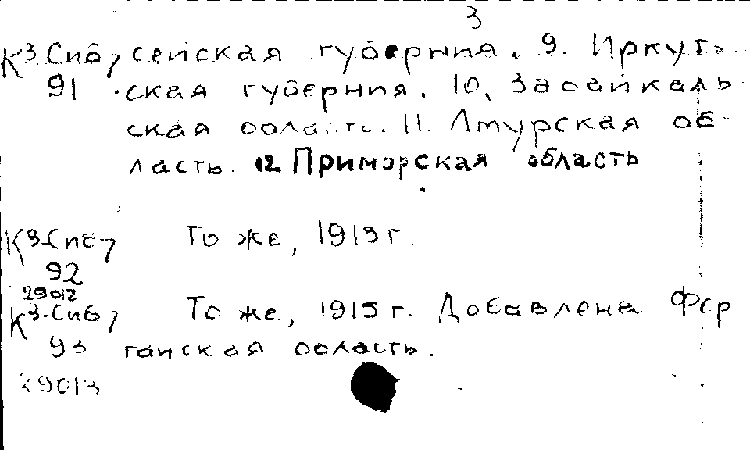 3
К 3-Сиб/ сейская губерния. 9. Иркут-
91 ская губерния. 10. Забайкаль-
ская область. 11. Амурская об-
ласть. 12 Приморская область
К 3-Сиб/ То же, 1913 г.
92
29012
К 3-Сиб/ То же, 1915 г. Добавлена Фер
93 ганская область.
29013